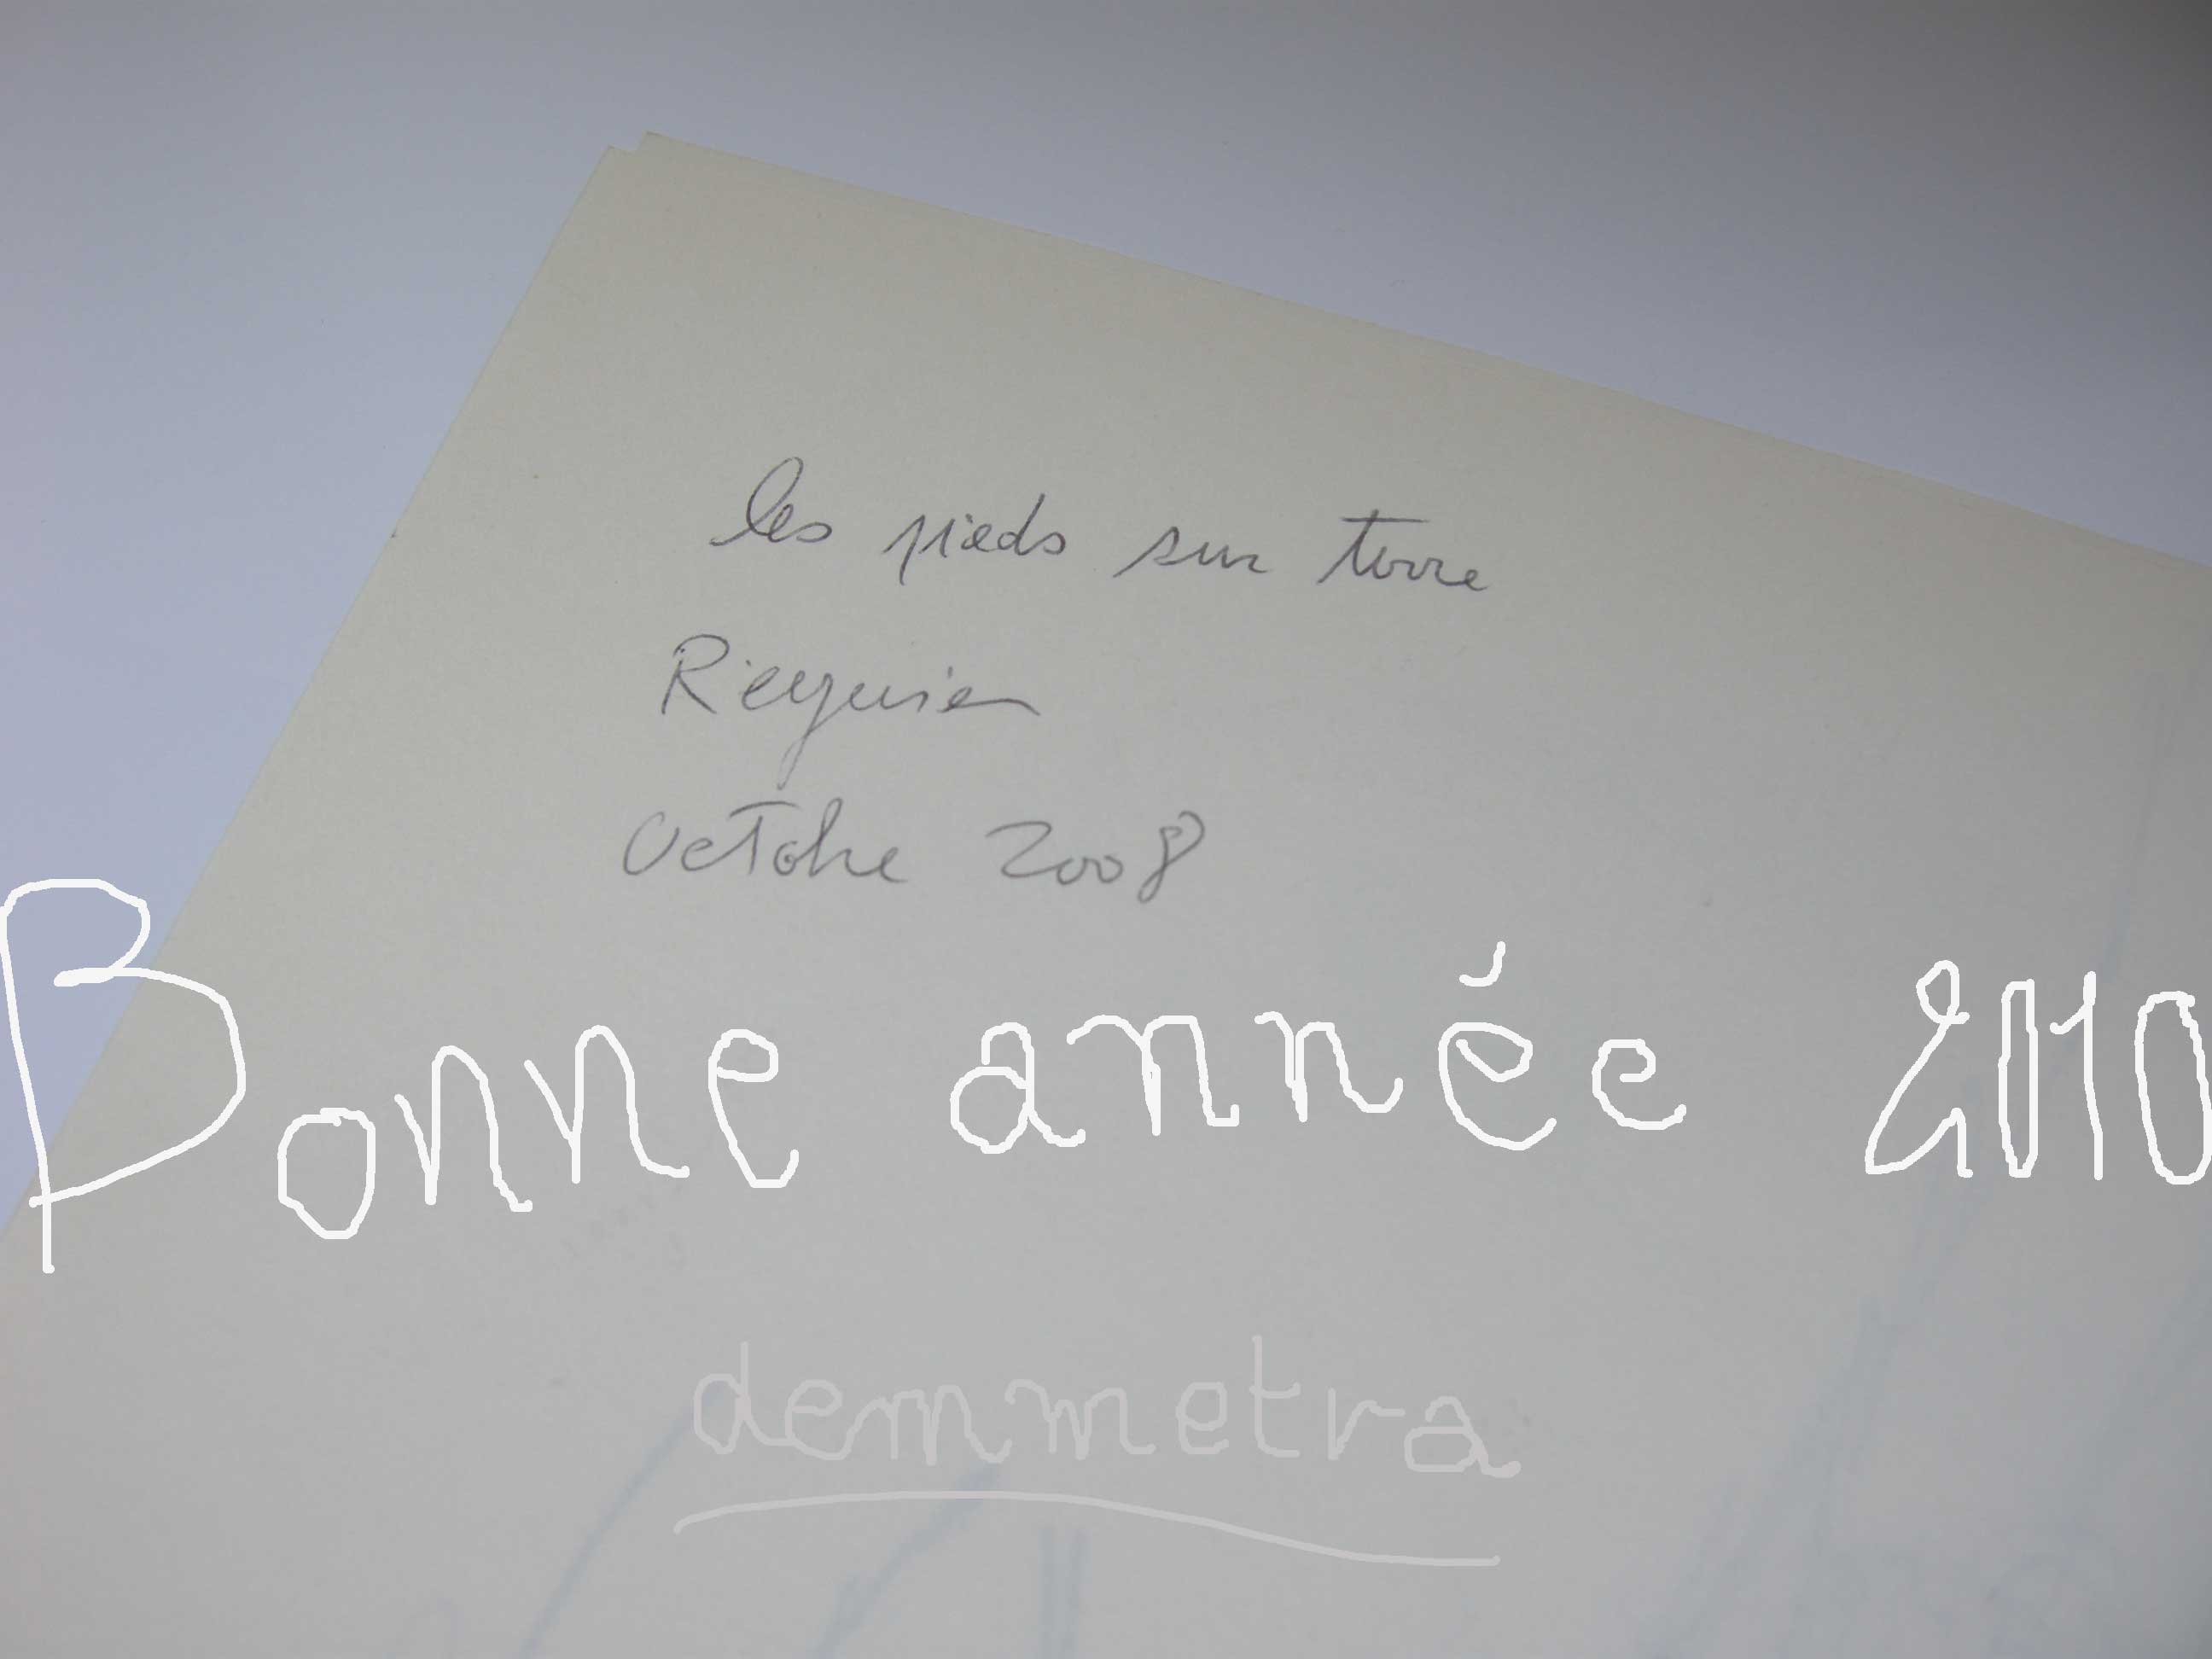 les pieds sur terre
Requien
Octobre 2008
Bonne année 2010
demmetra